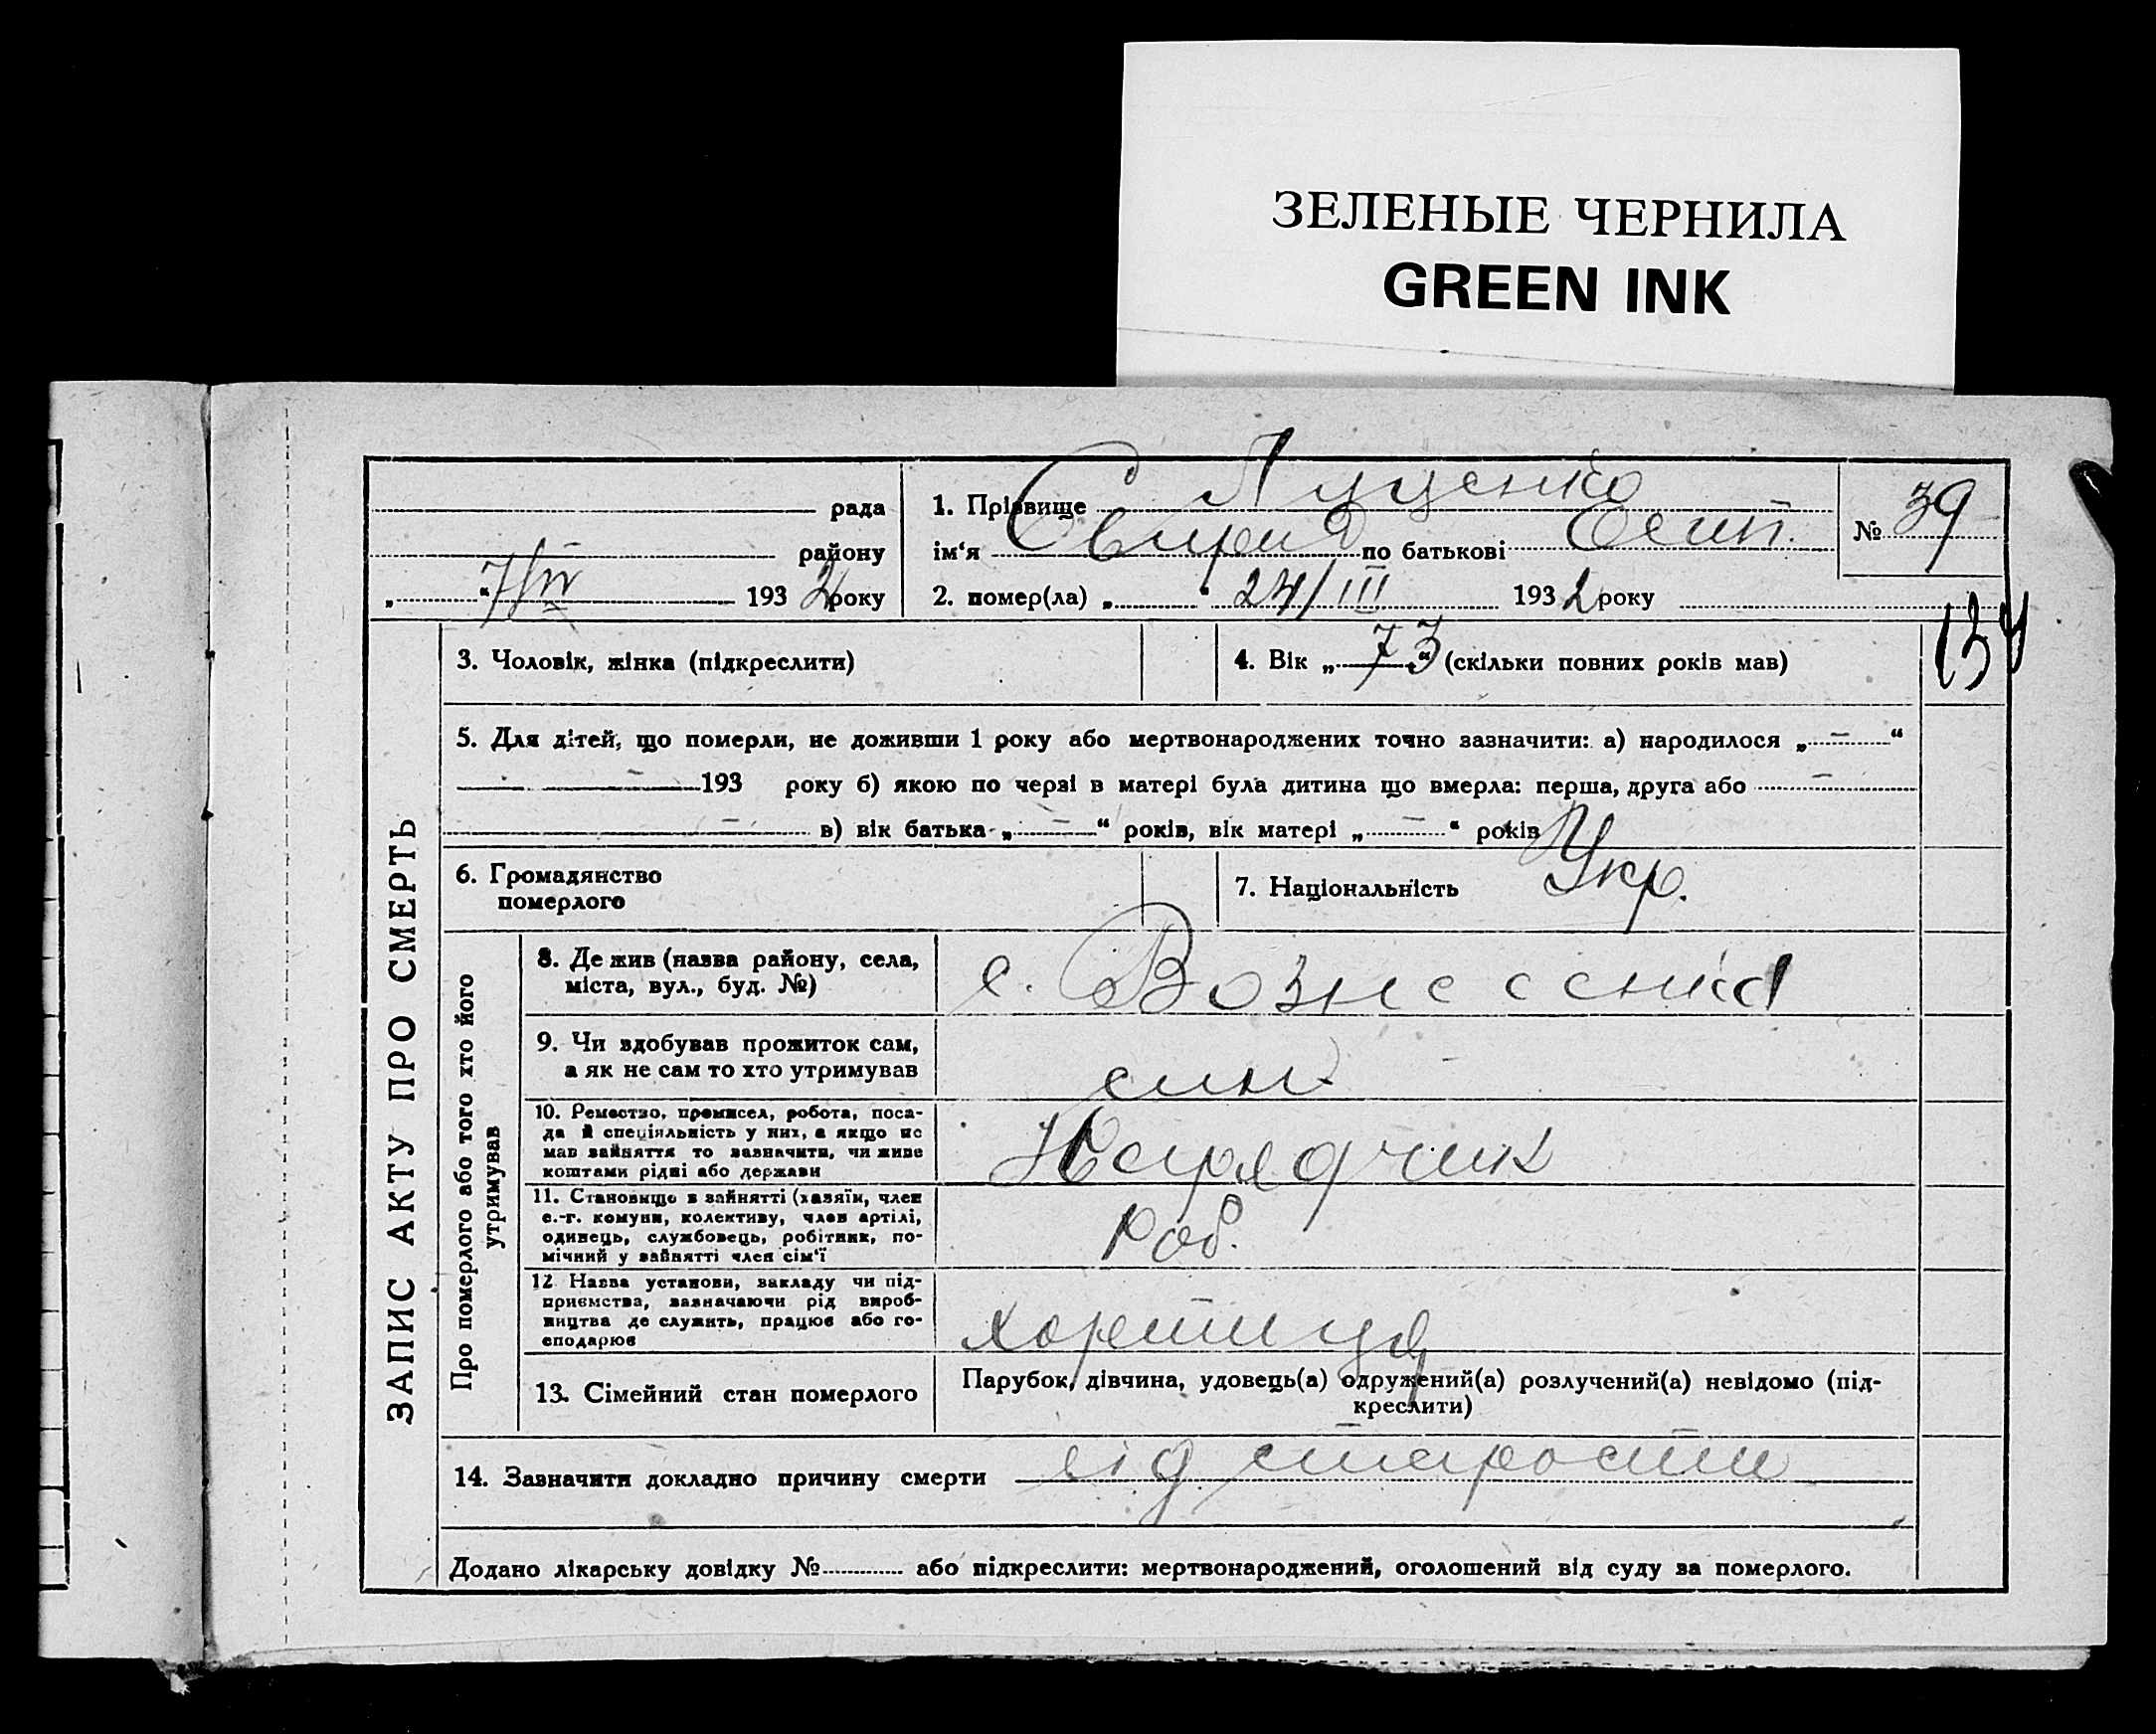 ЗЕЛЕНЫЕ ЧЕРНИЛА
GREEN INK
рада
району
„ “ 7/IV 1932 року
1. Прізвище Луценко
ім‘я Свирид по батькові Есип.
№ 39
2. помер(ла) „ “ 24/III 1932 року
134
ЗАПИС АКТУ ПРО СМЕРТЬ
3. Чоловік, жінка (підкреслити)
4. Вік „73“ (скільки повних років мав)
5. Для дітей, що померли, не доживши 1 року або мертвонароджених точно зазначити: а) народилося „ — “
— 193 року б) якою по черзі в матері була дитина що вмерла: перша, друга або —
— в) вік батька „ — “ років, вік матері „ — “ років
6. Громадянство
померлого
7. Національність Укр.
Про померлого або того хто його
утримував
8. Де жив (назва району, села,
міста, вул., буд. №)
с. Вознесенка
9. Чи здобував прожиток сам,
а як не сам то хто утримував
син
10. Ремество, промисел, робота, поса-
да й спеціяльність у них, а якщо не
мав зайняття то зазначити, чи живе
коштами рідні або держави
Нарядчик
11. Становище в зайнятті (хазяїн, член
с.-г. комуни, колективу, член артілі,
одинець, службовець, робітник, по-
мічний у зайнятті член сім‘ї
роб.
12 Назва установи, закладу чи під-
приємства, зазначаючи рід вироб-
ництва де служить, працює або го-
сподарює
хортиця
13. Сімейний стан померлого
Парубок, дівчина, удовець(а) одружений(а) розлучений(а) невідомо (під-
креслити)
14. Зазначити докладно причину смерти від старости
Додано лікарську довідку № або підкреслити: мертвонароджений, оголошений від суду за померлого.